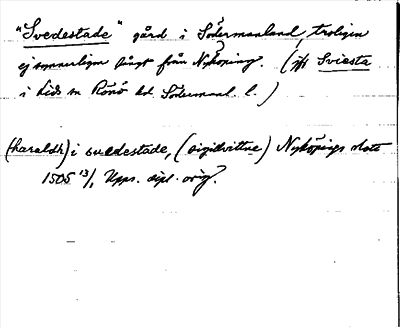 "Svedestade" gård i Södermanland, troligen
ej synnerligen långt från Nyköping. (jfr Sviesta
i Lids sn Rönö hd. Södermanl. l.)
(haraldh) i suedestade, (sigilvittne) Nyköpings slott
1505 13/1 Upps. dipl. orig.